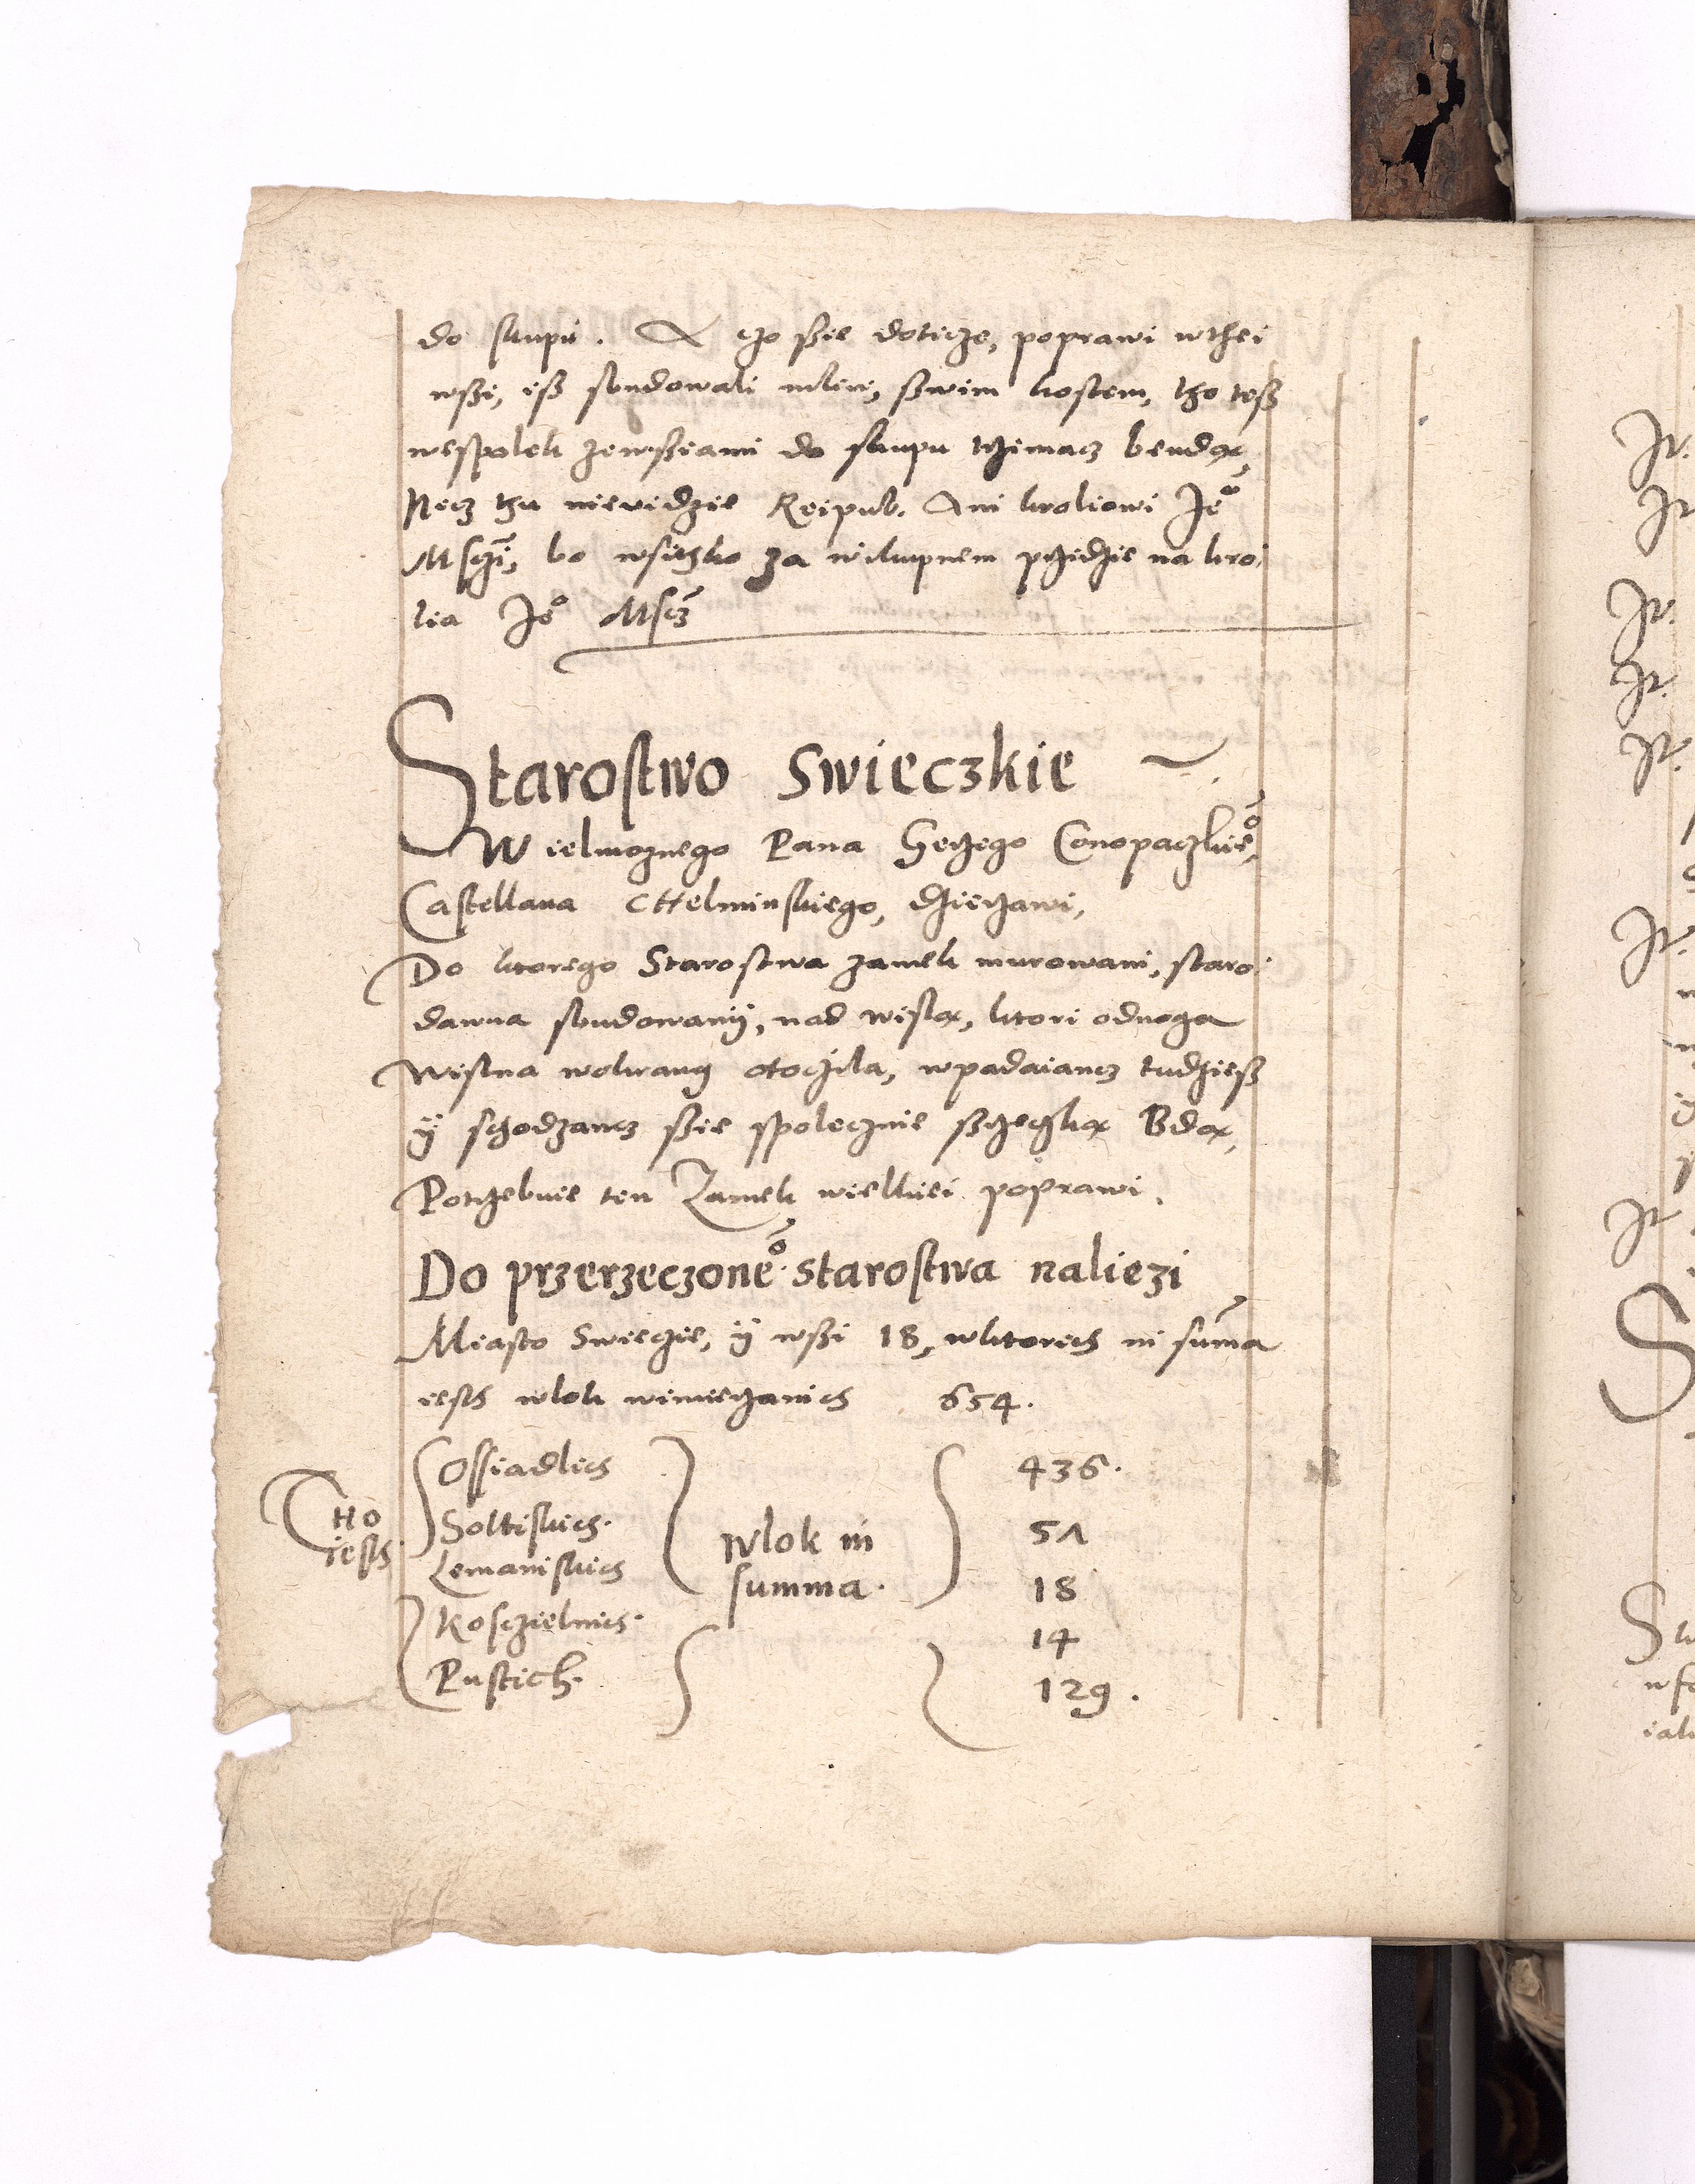 do skupu. A czo ßie doticze, poprawi wthei
wßi, iß sbudowali mlin, swim kostem, tho teß
wespolek zewßiami do skupu trzimacz bendą,
Necz thu nievidzie Reipub. Ani kroliowi Jeº
Msczi, bo wsitzko za wikupnem przidzie na kro,
lia Jeº Mscz
Starostwo Swieczkie
Wielmoznego Pana Gerzego Conopaczkieº,
Castellana CHelminskiego, dzierzawi,
Do ktorego Starostwa zamek murowani, staro,
dawna sbudowany, nad wislą, ktori odnoga
Wislna wokrang otoczila, wpadaiancz tudzieß
ÿ schodzancz ßie spolecznie ßrzeczką Bdą,
Potrzebuie ten Zamek wielkiei poprawi.
Do przerzeczoneº starostwa naliezi
Miasto Swiecie, ÿ wßi 18, wktorich in suma
iesth wlok wimierzanich 654.
THo iesth
Ossiadlich 436.
Soltiskich. 51
Lemaniskich 18
wlok in
summa.
Kosczielnich. 14
Pustich. 129.
Jt.
Jt
Jt.
Jt.
Jt.
Jt.
Jt
S